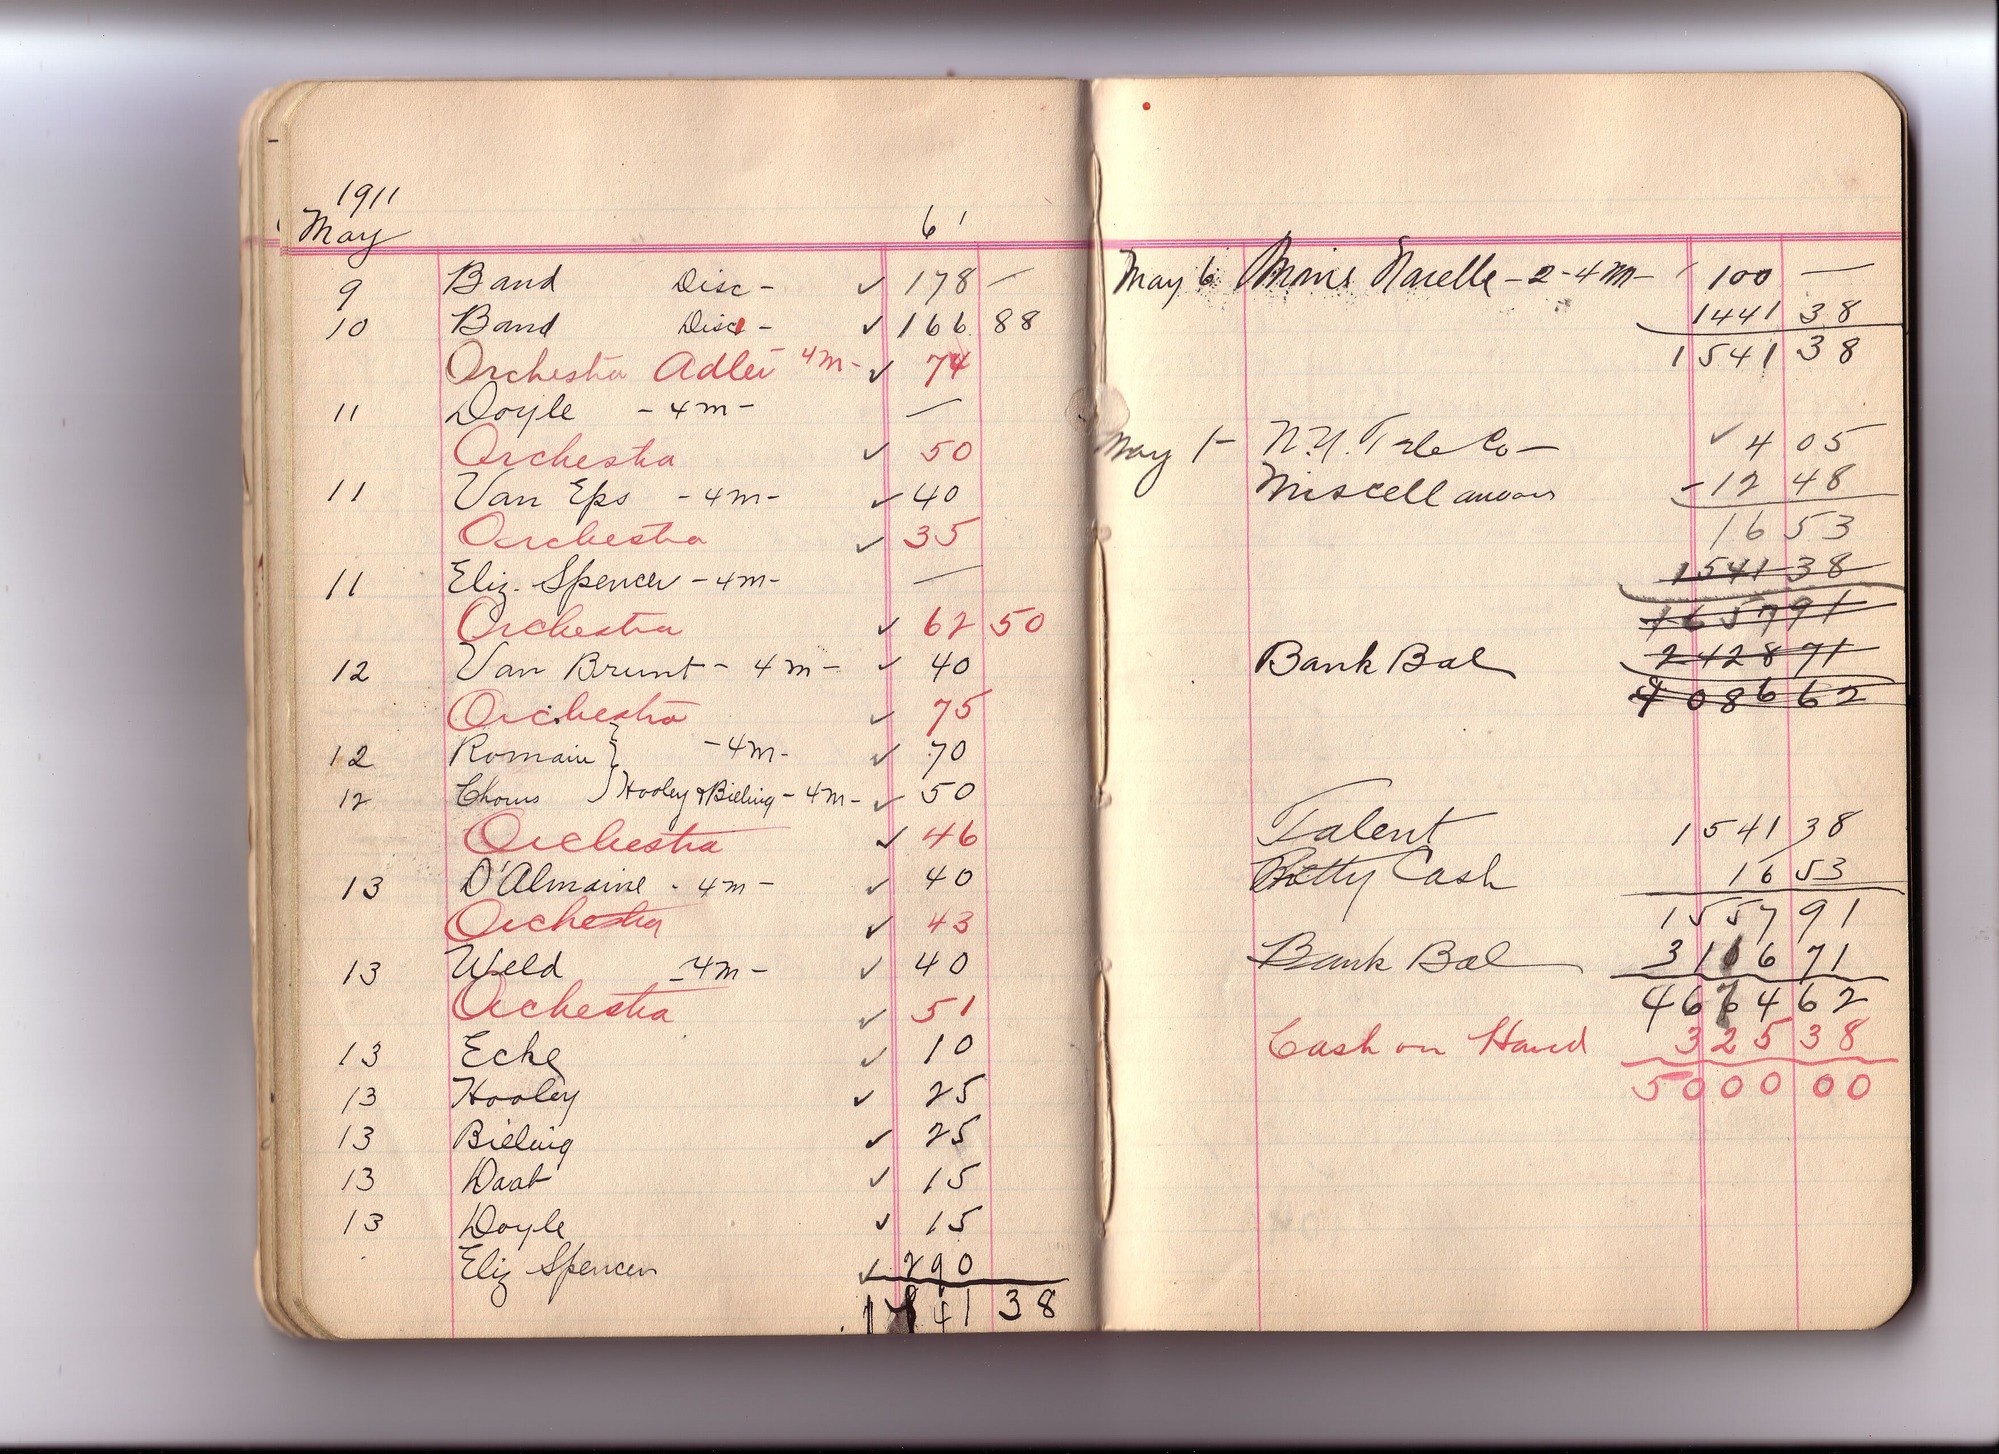 1911
May 61
9 Band Disc - ✓ 178 —
10 Band Disc - ✓ 166 88
Orchestra Adler 4m - ✓ 74
11 Doyle - 4m - —
Orchestra ✓ 50
11 Van Eps - 4m - ✓ 40
Orchestra ✓ 35
11 Eliz. Spencer - 4m - —
Orchestra ✓ 62 50
12 Van Brunt - 4m - ✓ 40
Orchestra ✓ 75
12 Romain } - 4m - ✓ 70
12 Chorus } Hooley & Bieling - 4m - ✓ 50
Orchestra ✓ 46
13 D'Almaine - 4m - ✓ 40
Orchestra ✓ 43
13 Weld - 4m - ✓ 40
Orchestra ✓ 51
13 Ecke ✓ 10
13 Hooley ✓ 25
13 Bieling ✓ 25
13 Daab ✓ 15
13 Doyle ✓ 15
Eliz Spencer ✓ 290
1441 38
May 6 Marie Narelle - 2 - 4m - 100 —
1441 38
1541 38
May 1 - N.Y. Tele Co - ✓ 4 05
Miscellaneous - 12 48
16 53
1541 38
1657 91
Bank Bal 2428 71
4086 62
Talent 1541 38
Petty Cash 16 53
1557 91
Bank Bal 3106 71
4664 62
Cash on Hand 325 38
5000 00